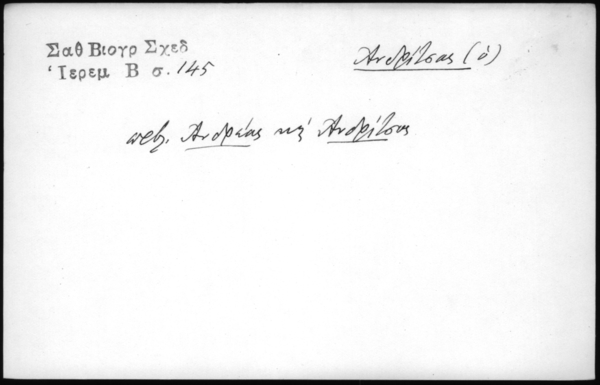 Σαθ Βιογρ Σχεδ
Ἱερεμ Β σ. 145
Ἀνδρίτσας (ὁ)
πρβλ. Ἀνδρέας κὴ Ἀνδρίτσος